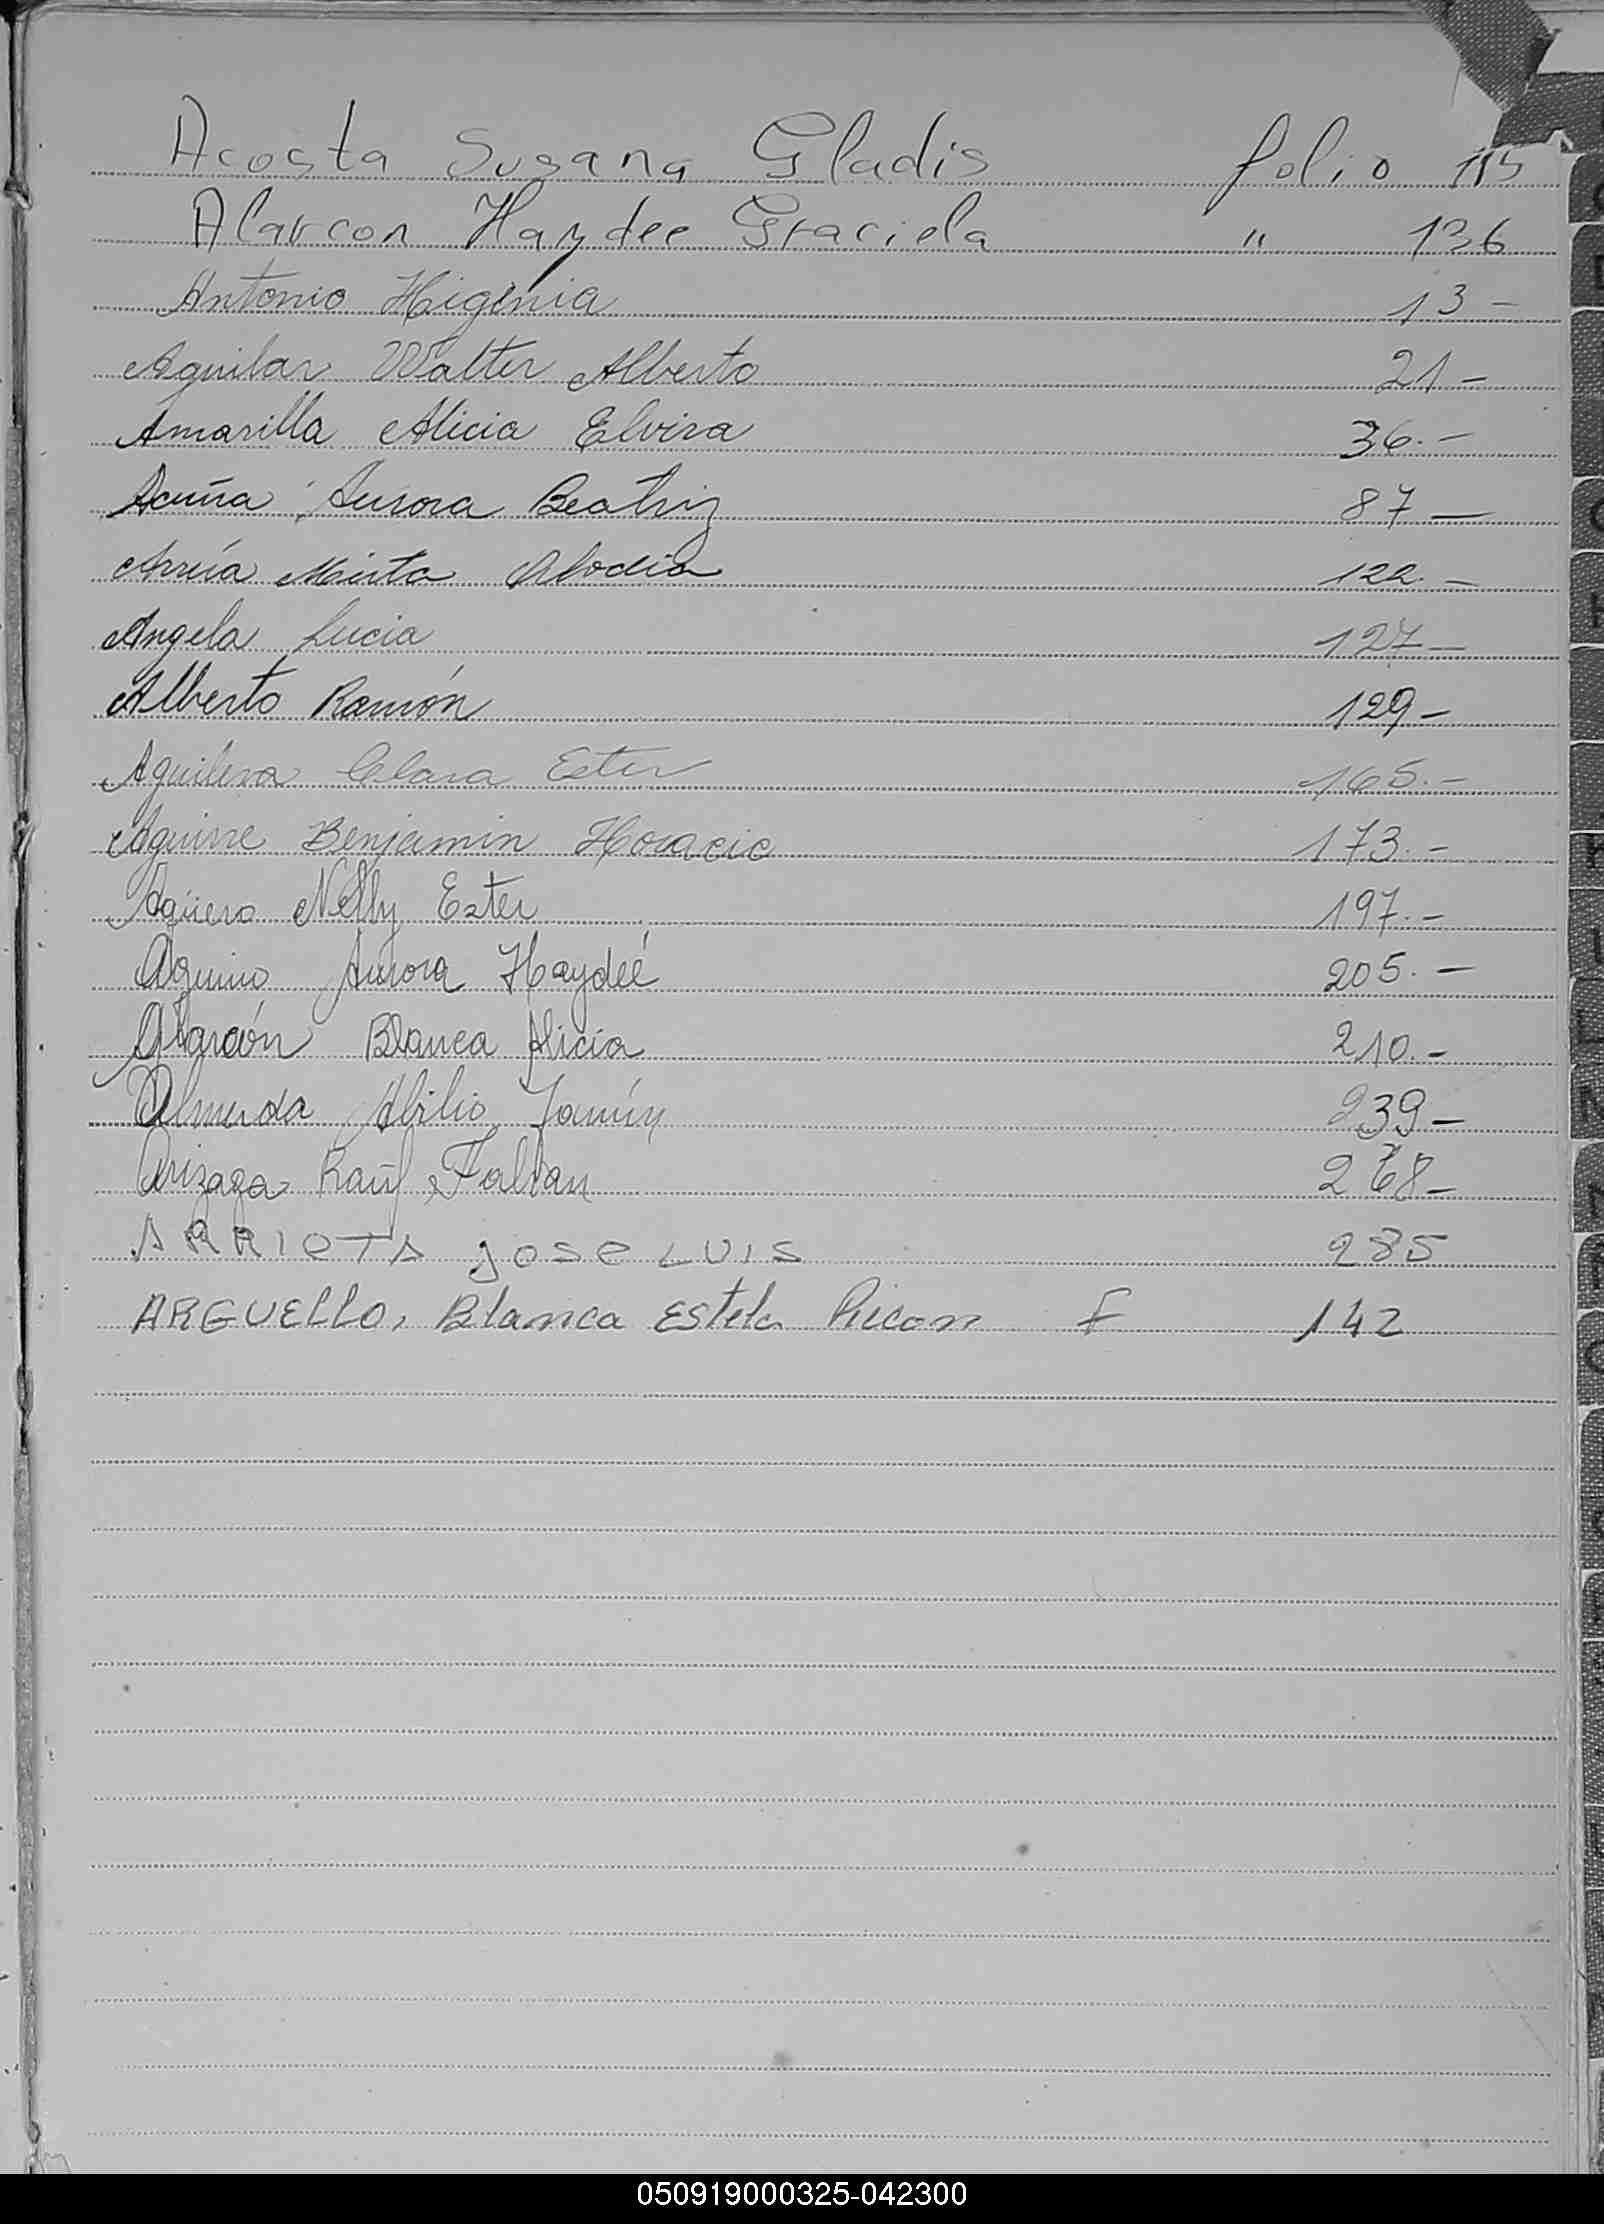 Acosta Susana Gladis folio 115
Alarcon Haydee Graciela " 136
Antonio Higinia 13 -
Aguilar Walter Alberto 21 -
Amarilla Alicia Elvira 36. -
Acuña Aurora Beatriz 87 -
Mirta 122. -
Angela Lucia 127 -
Alberto Ramón 129 -
Aguilera Clara Ester 165. -
Aguirre Benjamin Horacio 173. -
Agüero Nelly Ester 197. -
Aquino Aurora Haydeé 205. -
Alarcón Blanca Alicia 210. -
Almeida Abilio 239 -
Arizaga Raúl Fabian 268 -
ARRIETA JOSE LUIS 285
ARGUELLO, Blanca Estela Ricon F 142
050919000325-042300